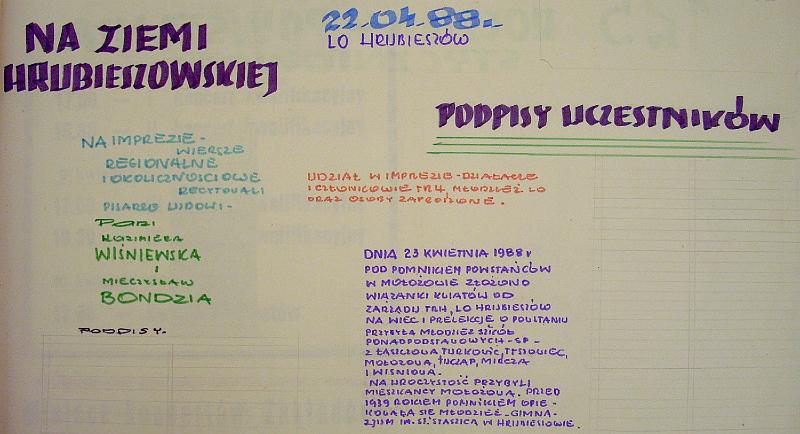 NA ZIEMI
HRUBIESZOWSKIEJ
22.04.88.
LO HRUBIESZÓW
PODPISY UCZESTNIKÓW
NA IMPREZIE -
WIERSZE
REGIONALNE
I OKOLICZNOŚCIOWE
RECYTOWALI
PISARZE LUDOWI -
PANI
KAZIMIERA
WIŚNIEWSKA
I
MIECZYSŁAW
BONDZIA
PODPISY.
UDZIAŁ W IMPREZIE - DZIAŁACZE
I CZŁONKOWIE TRH, MŁODZIEŻ LO
ORAZ OSOBY ZAPROSZONE.
DNIA 23 KWIETNIA 1988 r
POD POMNIKIEM POWSTAŃCÓW
W MOŁOŻOWIE ZŁOŻONO
WIĄZANKI KWIATÓW OD
ZARZĄDU TRH, LO HRUBIESZÓW
NA WIEC I PRELEKCJE O POWSTANIU
PRZYBYŁA MŁODZIEŻ SZKÓŁ
PONADPODSTAWOWYCH - SP -
Z ŁASZCZOWA TURKOWIC, TYSZOWIEC,
MOŁOŻOWA, TUCZAP, MIRCZA
I WISNIOWA.
NA UROCZYSTOŚĆ PRZYBYLI
MIESZKAŃCY MOŁOŻOWA. PRZED
1939 ROKIEM POMNIKIEM OPIE-
KOWAŁA SIĘ MŁODZIEŻ - GIMNA-
ZJUM IM. ST. STASZICA W HRUBIESZOWIE.